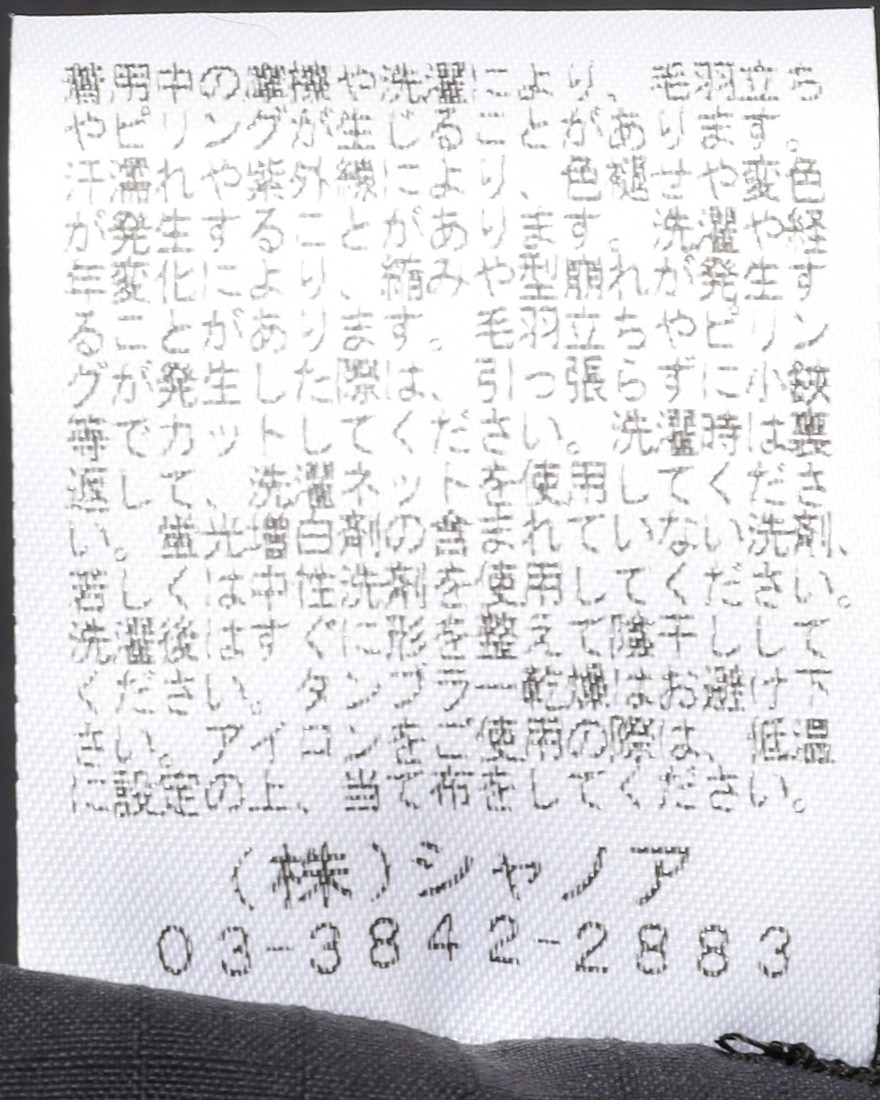 着用中の摩擦や洗濯により、毛羽立ち
やピリングが生じることがあります。
汗濡れや紫外線により、色褪せや変色
が発生することがあります。洗濯や経
年変化により、縮みや型崩れが発生す
ることがあります。毛羽立ちやピリン
グが発生した際は、引っ張らずに小鋏
等でカットしてください。洗濯時は裏
返して、洗濯ネットを使用してくださ
い。蛍光増白剤の含まれていない洗剤、
若しくは中性洗剤を使用してください。
洗濯後はすぐに形を整えて陰干しして
ください。タンブラー乾燥はお避け下
さい。アイロンをご使用の際は、低温
に設定の上、当て布をしてください。
(株)シャノア
03-3842-2883